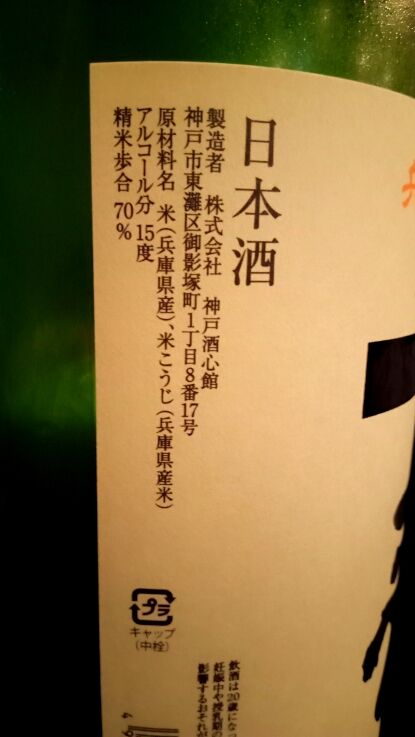 日本酒
製造者 株式会社 神戸酒心館
神戸市東灘区御影塚町1丁目8番17号
原材料名 米(兵庫県産)、米こうじ(兵庫県産米)
アルコール分 15度
精米歩合 70%
プラ
キャップ
(中栓)
飲酒は20歳になっ
妊娠中や授乳期の
影響するおそれが